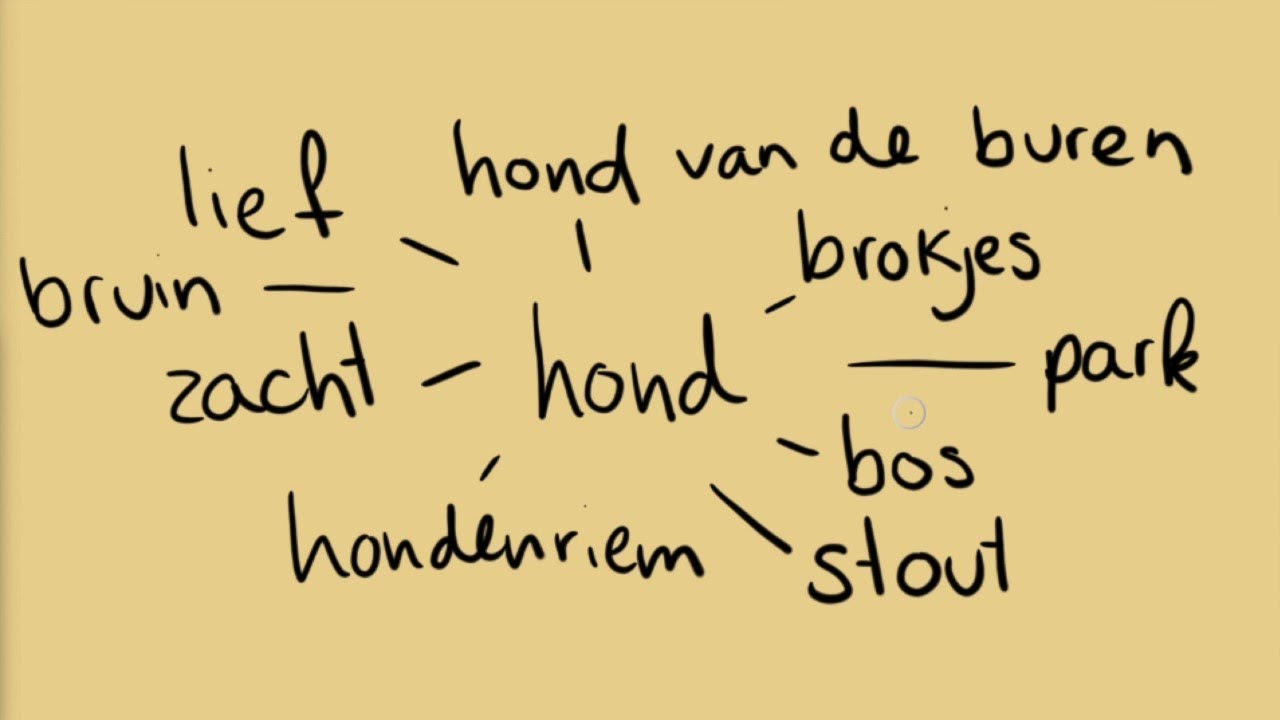 lief
hond van de buren
bruin
brokjes
zacht
hond
park
bos
hondenriem
stout